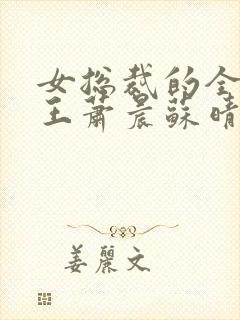 女总裁的全
王萧晨苏晴
姜丽文